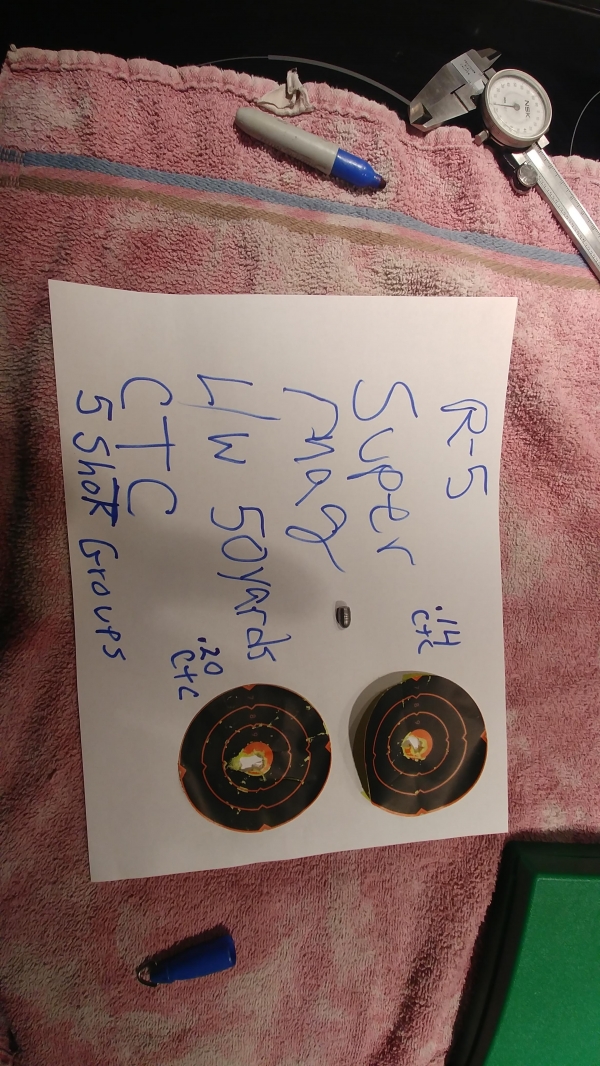 R-5
Super
Mag
L/W 50yards
CTC
5 Shot Groups
.14
CTC
.20
CTC
NSK